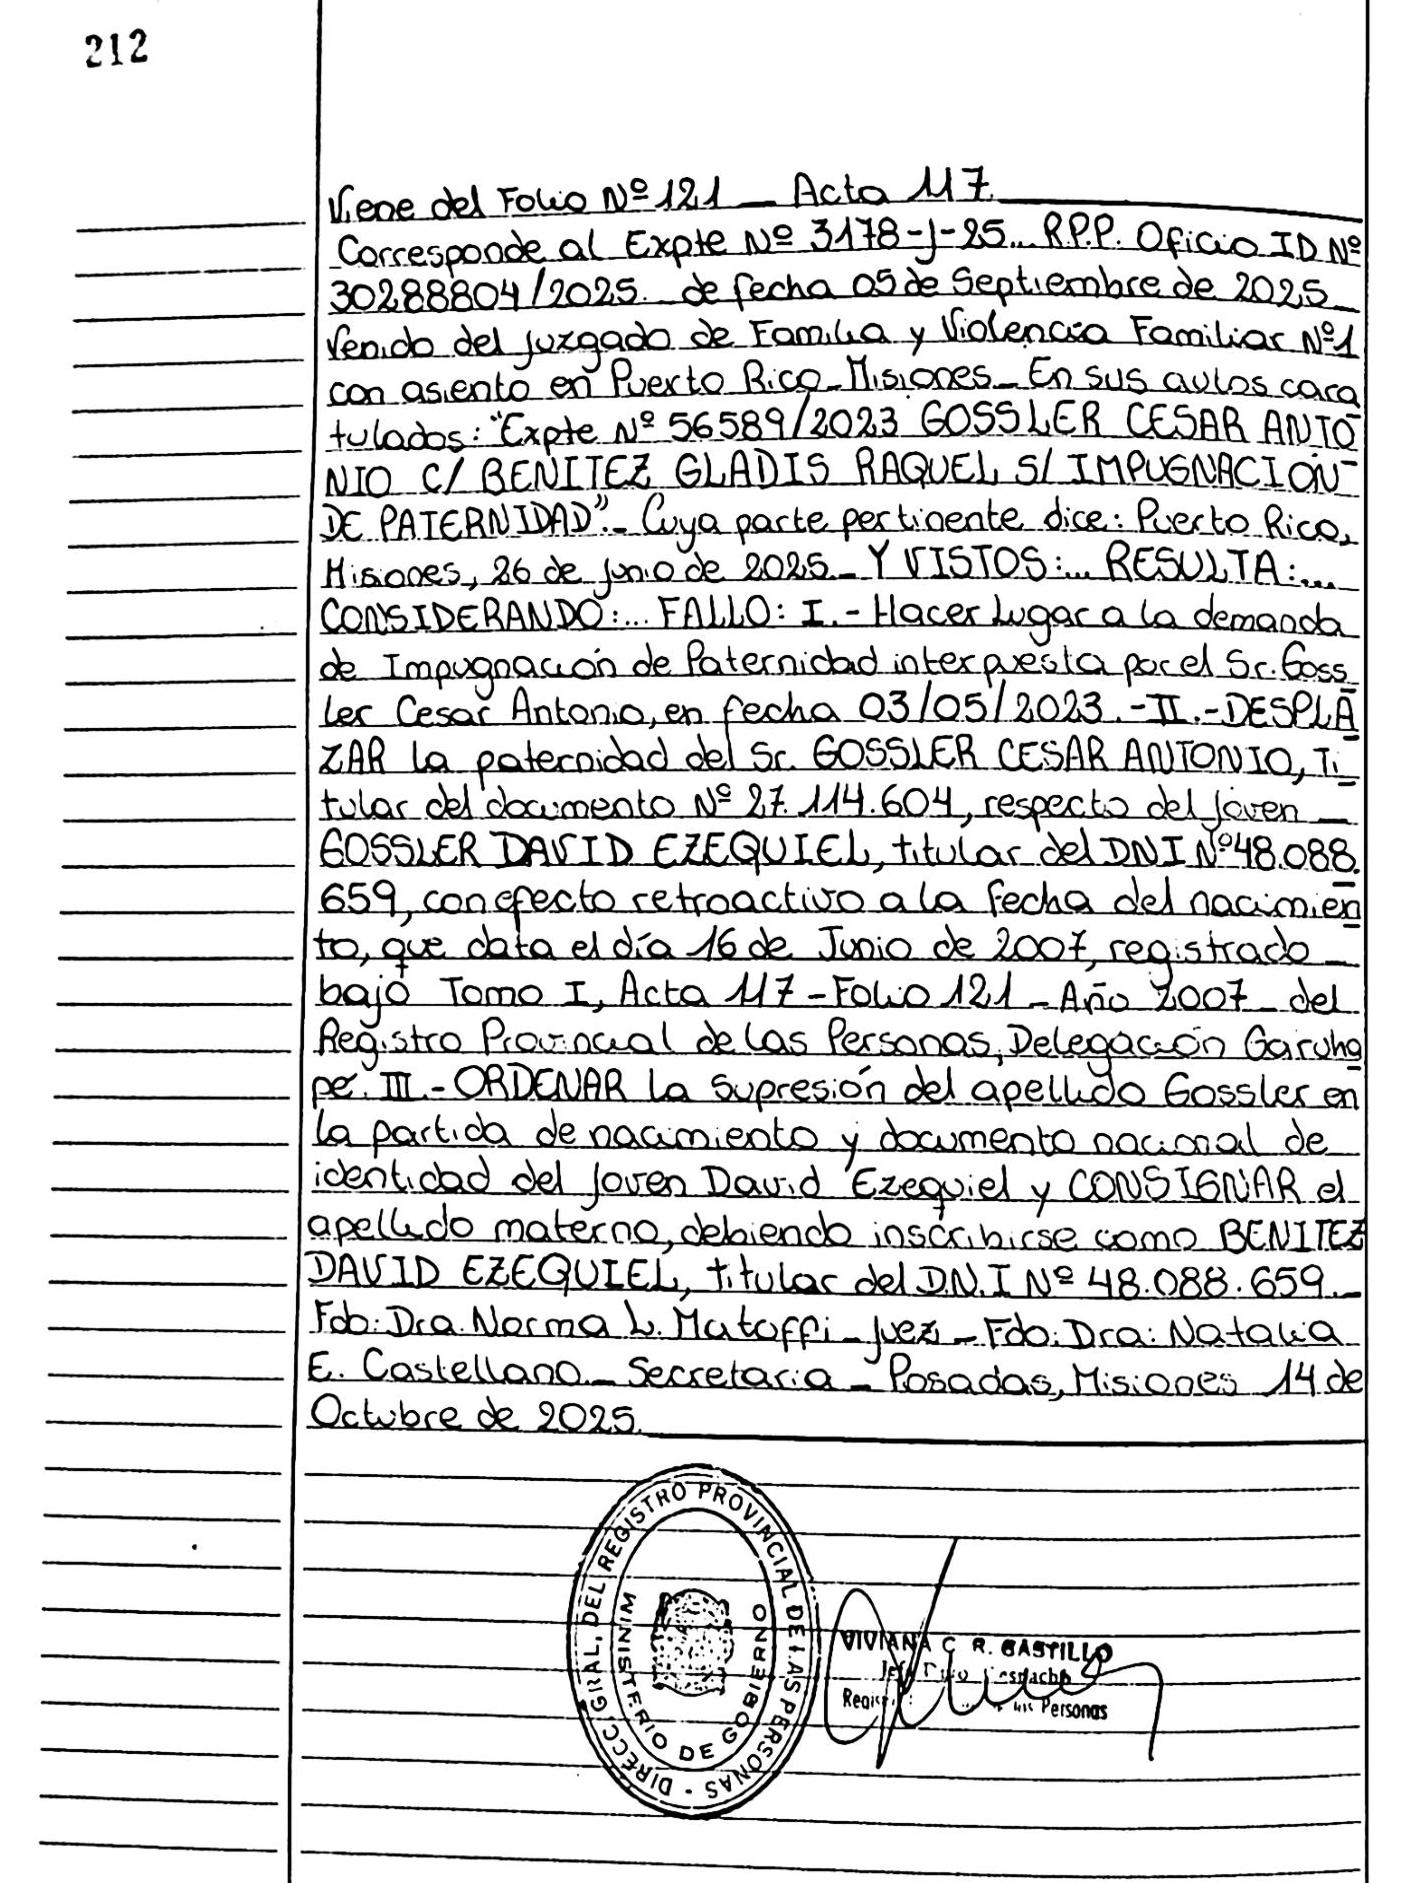 212
Viene del Folio Nº 121 _ Acta 117
Corresponde al Expte Nº 3178-J-25... R.P.P. Oficio ID Nº
30288804/2025. de fecha 05 de Septiembre de 2025
Venido del Juzgado de Familia y Violencia Familiar Nº1
con asiento en Puerto Rico_Misiones_ En sus autos cara
tulados: "Expte Nº 56589/2023 GOSSLER CESAR ANTO
NIO C/ BENITEZ GLADIS RAQUEL S/ IMPUGNACION
DE PATERNIDAD".- Cuya parte pertinente dice: Puerto Rico,
Misiones, 26 de Junio de 2025_ Y VISTOS:... RESULTA:...
CONSIDERANDO:... FALLO: I.- Hacer Lugar a la demanda
de Impugnación de Paternidad interpuesta por el Sr. Goss
ler Cesar Antonio, en fecha 03/05/2023.-II.-DESPLA
ZAR la paternidad del Sr. GOSSLER CESAR ANTONIO, Ti
tular del documento Nº 27.114.604, respecto del Joven _
GOSSLER DAVID EZEQUIEL, titular del DNI Nº48.088.
659, con efecto retroactivo a la fecha del nacimien
to, que data el día 16 de Junio de 2007, registrado _
bajo Tomo I, Acta 117-Folio 121_Año 2007_ del
Registro Provincial de las Personas, Delegación Garuha
pé. III.- ORDENAR la supresión del apellido Gossler en
la partida de nacimiento y documento nacional de
identidad del Joven David Ezequiel y CONSIGNAR el
apellido materno, debiendo inscribirse como BENITEZ
DAVID EZEQUIEL, titular del D.N.I Nº 48.088.659._
Fdo: Dra. Norma L. Matoffi_Juez_Fdo: Dra: Natalia
E. Castellano_ Secretaria _ Posadas, Misiones 14 de
Octubre de 2025.
DIRECC. GRAL. DEL REGISTRO PROVINCIAL DE LAS PERSONAS -
MINISTERIO DE GOBIERNO
VIVIANA C. R. CASTILLO
Personas